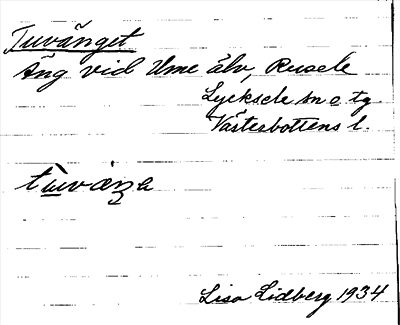 Tuvänget
Äng vid Ume älv, Rusele
Lycksele sn o tg
Västerbottens l.
Lisa Lidberg 1934